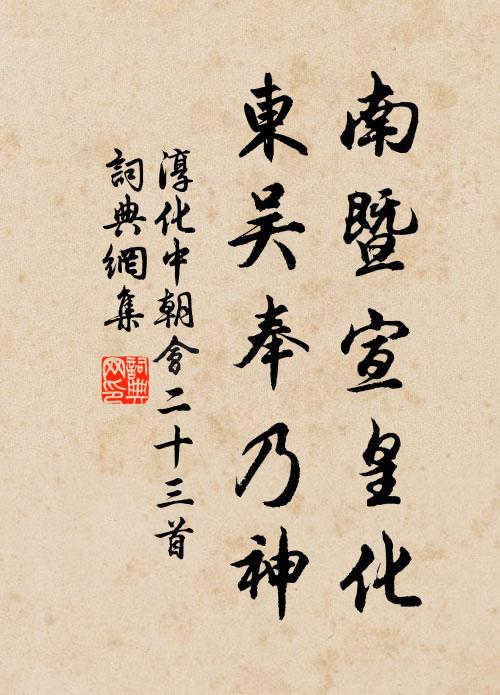 南暨宣皇化
東吴奉乃神
淳化中朝會二十三首
詞典網集
詞典
网印